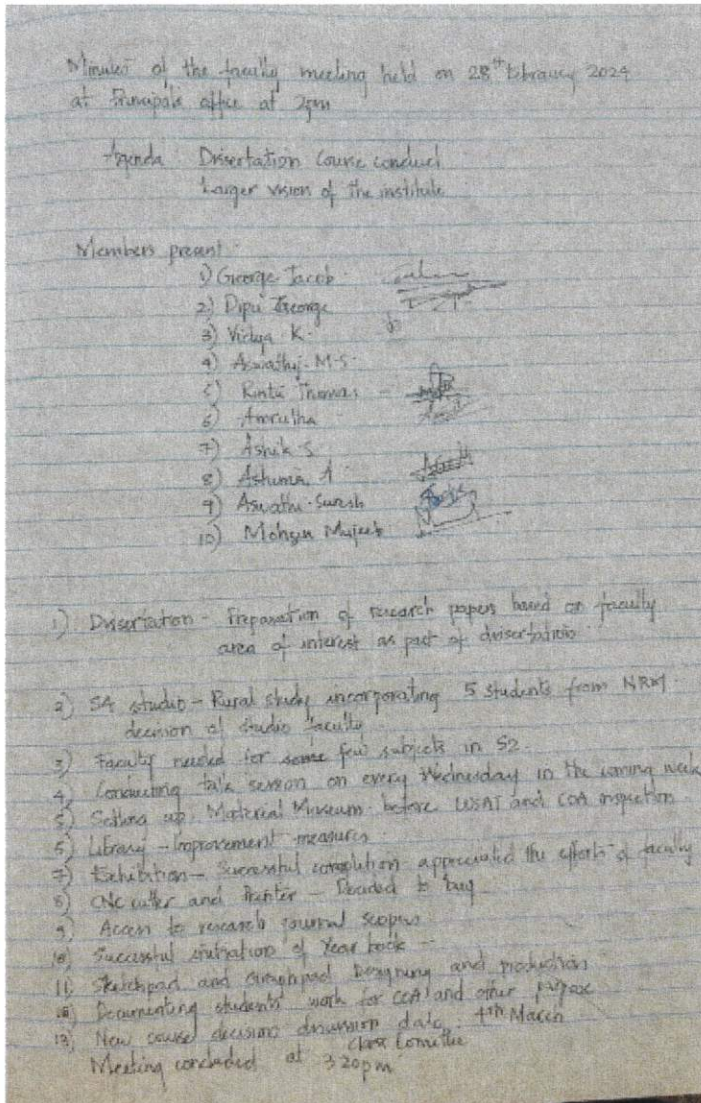 Minutes of the faculty meeting held on 28th February 2024
at Principals office at 2pm
Agenda Dissertation Course conduct
Larger vision of the institute
Members present
1) George Jacob
2) Dipu George
3) Vidya K.
4) Aswathy M.S.
5) Rintu Thomas
6) Amrutha
7) Ashik S
8) Ashima A
9) Aswathi Suresh
10) Mohsin Mujeeb
1) Dissertation - Preparation of research papers based on faculty
area of interest as part of dissertation
2) S4 studio - Rural study incorporating 5 students from NRM
decision of studio faculty
3) Faculty needed for some few subjects in S2.
4) Conducting talk session on every Wednesday in the coming week
5) Setting up Material Museum before and COA inspection
6) Library - Improvement measures
7) Exhibition - Successful completion appreciated the efforts of faculty
8) CNC cutter and Printer - Decided to buy
9) Access to research journal scopus
10) Successful initiation of Year book
11) Sketchpad and Graphpad Designing and production
12) Documenting students' work for COA and other purpose
13) New course decision discussion date 4th March
Class Comittie
Meeting concluded at 3 20pm